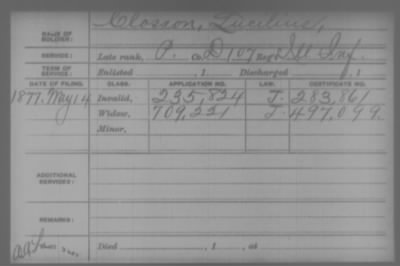 Closson, Lucilius,
NAME OF SOLDIER:
SERVICE: Late rank, P. Co. D, 107 Reg't Ill Inf.
TERM OF SERVICE: Enlisted , 1 Discharged , 1
DATE OF FILING. CLASS. APPLICATION NO. LAW. CERTIFICATE NO.
1877. May 14 Invalid, 235,824 J. 283,861
Widow, 709,221 J. 497,099
Minor,
ADDITIONAL SERVICES:
REMARKS:
Died , 1 , at